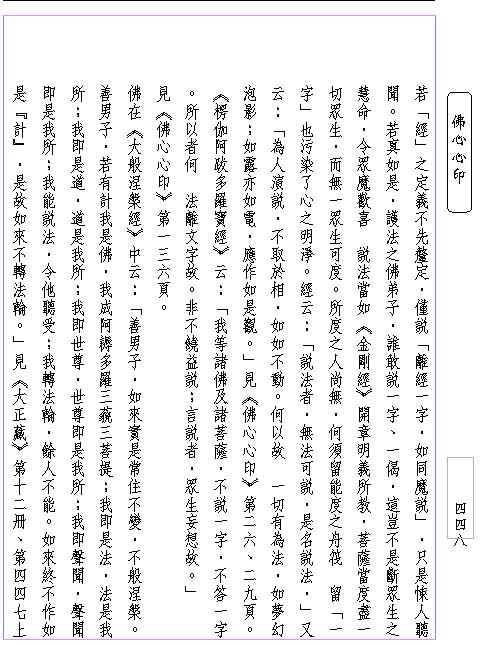 佛心心印
若「經」之定義不先釐定，僅說「離經一字，如同魔說」，只是悚人聽
聞。若真如是，護法之佛弟子，誰敢說一字、一偈，這豈不是斷眾生之
慧命，令眾魔歡喜　說法當如《金剛經》開章明義所教，菩薩當度盡一
切眾生，而無一眾生可度。所度之人尚無，何須留能度之舟筏　留「一
字」也污染了心之明淨。經云：「說法者，無法可說，是名說法，」又
云：「為人演說，不取於相，如如不動。何以故　一切有為法，如夢幻
泡影；如露亦如電，應作如是觀。」見《佛心心印》第二六、二九頁。
《楞伽阿跋多羅寶經》云：「我等諸佛及諸菩薩，不說一字，不答一字
。所以者何　法離文字故。非不饒益說；言說者，眾生妄想故。」
見《佛心心印》第一三六頁。
佛在《大般涅槃經》中云：「善男子，如來實是常住不變，不般涅槃。
善男子，若有計我是佛，我成阿耨多羅三藐三菩提；我即是法，法是我
所；我即是道，道是我所；我即世尊，世尊即是我所；我即聲聞，聲聞
即是我所；我能說法，令他聽受；我轉法輪，餘人不能。如來終不作如
是『計』，是故如來不轉法輪。」見《大正藏》第十二冊、第四四七上
四四八